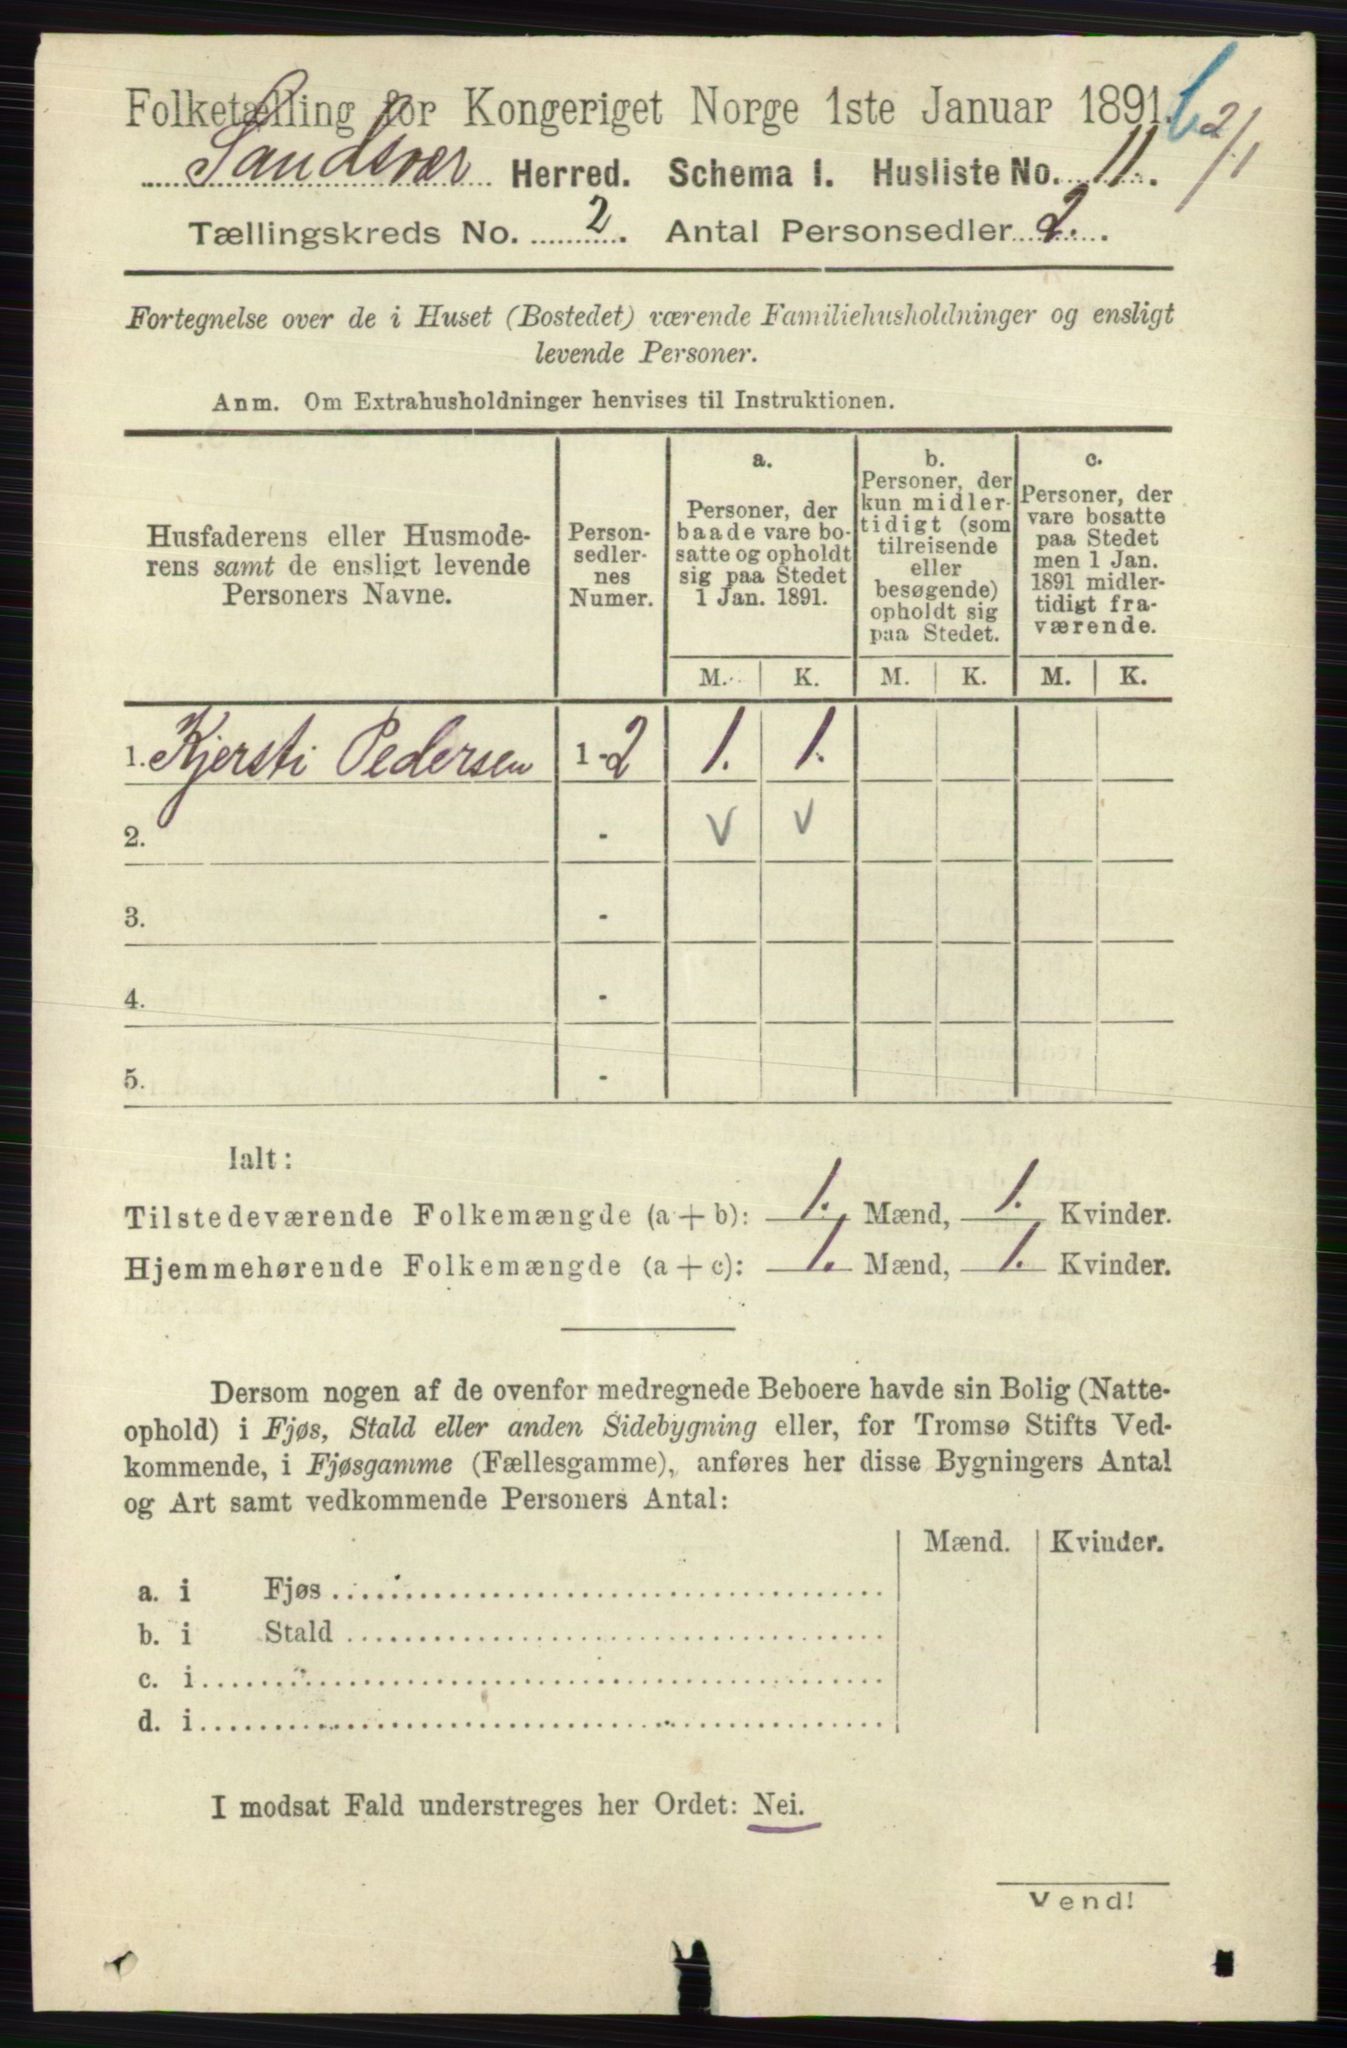 Folketælling for Kongeriget Norge 1ste Januar 1891.
b 2/1
Sandsvær Herred. Schema I. Husliste No. 11.
Tællingskreds No. 2. Antal Personsedler 2.
Fortegnelse over de i Huset (Bostedet) værende Familiehusholdninger og ensligt
levende Personer.
Anm. Om Extrahusholdninger henvises til Instruktionen.
Husfaderens eller Husmode-
rens samt de ensligt levende
Personers Navne.
Person-
sedler-
nes
Numer.
a.
Personer, der
baade vare bo-
satte og opholdt
sig paa Stedet
1 Jan. 1891.
b.
Personer, der
kun midler-
tidigt (som
tilreisende
eller
besøgende)
opholdt sig
paa Stedet.
c.
Personer, der
vare bosatte
paa Stedet
men 1 Jan.
1891 midler-
tidigt fra-
værende.
M. K. M. K. M. K.
1. Kjersti Pedersen 1-2 1. 1.
2. - V V
3. -
4. -
5. -
Ialt:
Tilstedeværende Folkemængde (a + b): 1. Mænd, 1. Kvinder.
Hjemmehørende Folkemængde (a + c): 1. Mænd, 1. Kvinder.
Dersom nogen af de ovenfor medregnede Beboere havde sin Bolig (Natte-
ophold) i Fjøs, Stald eller anden Sidebygning eller, for Tromsø Stifts Ved-
kommende, i Fjøsgamme (Fællesgamme), anføres her disse Bygningers Antal
og Art samt vedkommende Personers Antal:
Mænd. Kvinder.
a. i Fjøs
b. i Stald
c. i
d. i
I modsat Fald understreges her Ordet: Nei.
Vend!